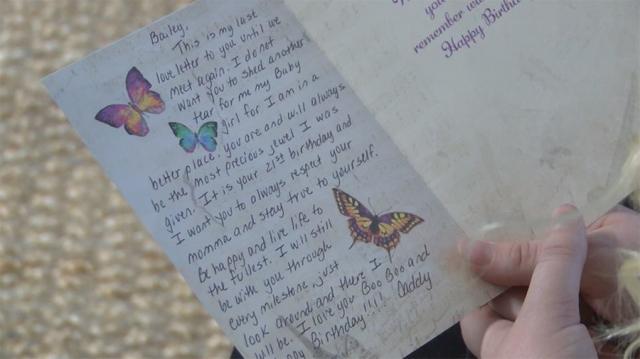 Bailey,
This is my last
love letter to you until we
meet again. I do not
want you to shed another
tear for me my Baby
girl for I am in a
better place. you are and will always
be the most precious jewel I was
given. It is your 21st birthday and
I want you to always respect your
momma and stay true to yourself.
Be happy and live life to
the fullest. I will still
be with you through
every milestone, just
look around and there I
will be. I love you Boo Boo and
Birthday!!!! Daddy
you
remember
Happy